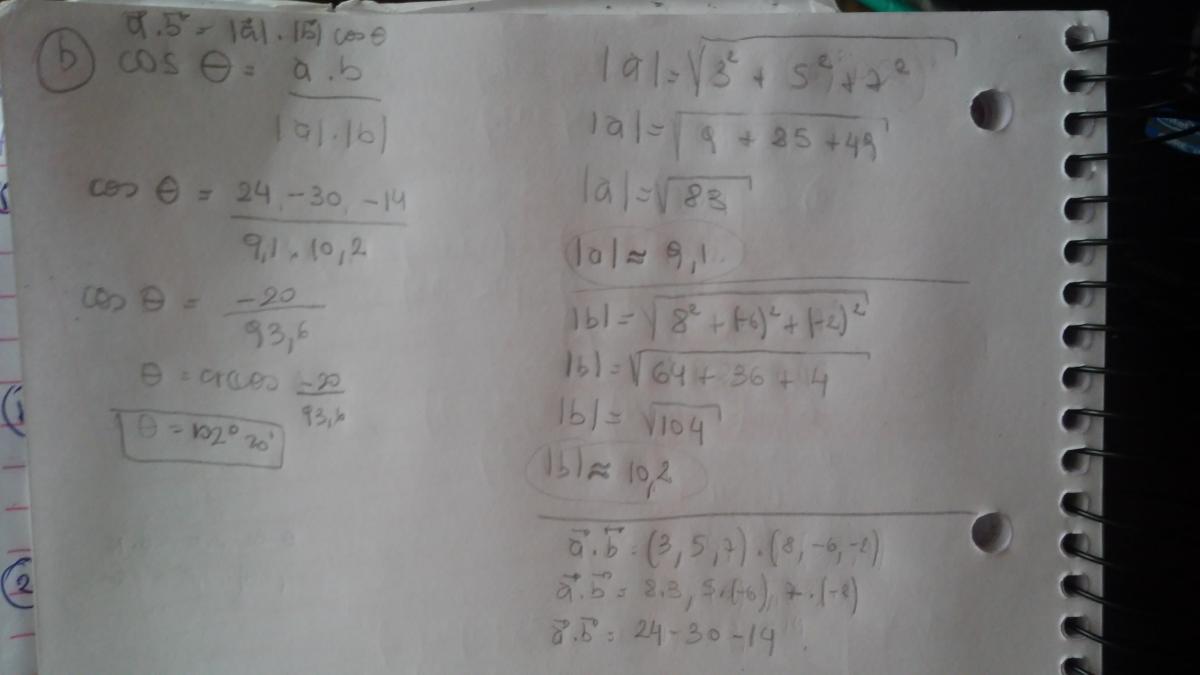 a⃗.b⃗ = |a⃗|.|b⃗| cos θ
b) cos θ = a.b
|a|.|b|
cos θ = 24, -30, -14
9,1 . 10,2
cos θ = -20
93,6
θ = arccos -20
93,6
θ = 102° 20'
|a| = √3² + 5² + 7²
|a| = √9 + 25 + 49
|a| = √83
|a| ≈ 9,1
|b| = √8² + (-6)² + (-2)²
|b| = √64 + 36 + 4
|b| = √104
|b| ≈ 10,2
a⃗.b⃗ = (3, 5, 7) . (8, -6, -2)
a⃗.b⃗ = 8.3, 5.(-6), 7.(-2)
a⃗.b⃗ = 24 - 30 - 14
2